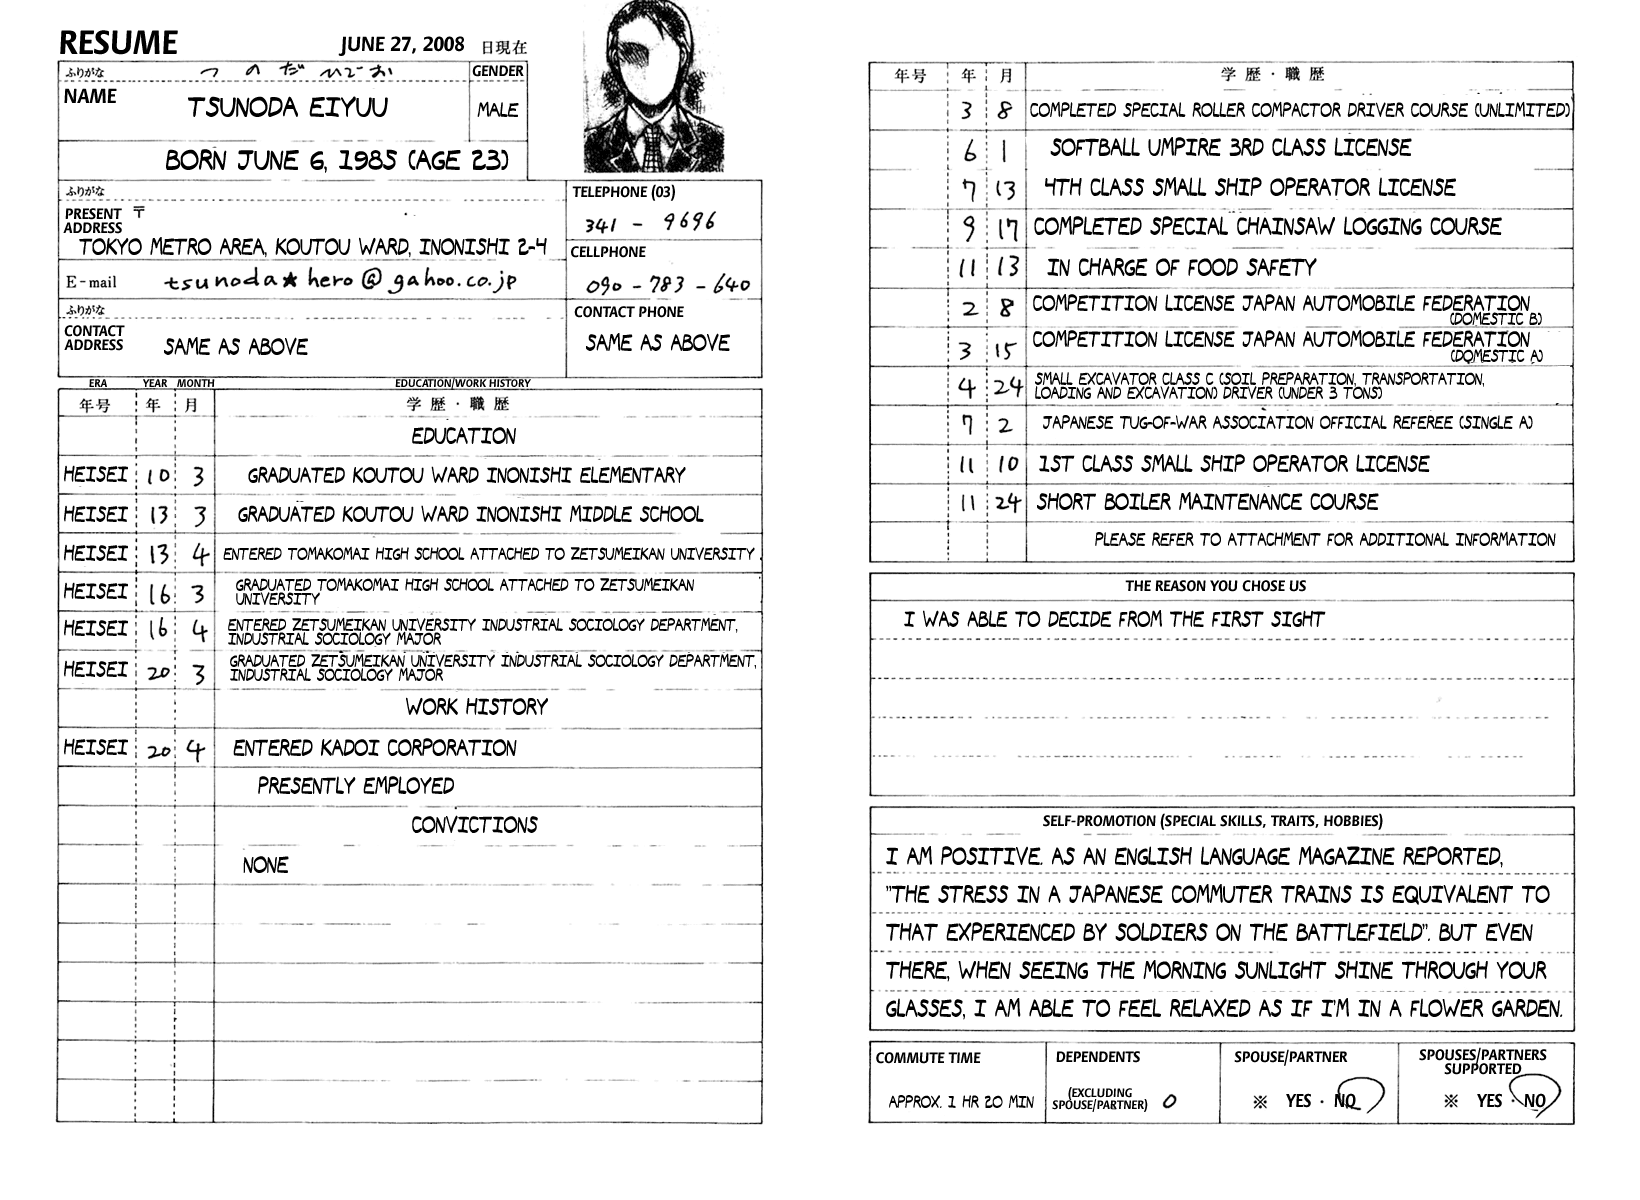 RESUME
JUNE 27, 2008 日現在
ふりがな つのだ ひでお
GENDER
NAME
TSUNODA EIYUU
MALE
BORN JUNE 6, 1985 (AGE 23)
ふりがな
PRESENT ADDRESS 〒
TOKYO METRO AREA, KOUTOU WARD, INONISHI 2-4
TELEPHONE (03)
341 - 9696
E-mail tsunoda★hero@gahoo.co.jp
CELLPHONE
090 - 783 - 640
ふりがな
CONTACT ADDRESS
SAME AS ABOVE
CONTACT PHONE
SAME AS ABOVE
ERA YEAR MONTH EDUCATION/WORK HISTORY
年号 年 月 学歴・職歴
EDUCATION
HEISEI 10 3 GRADUATED KOUTOU WARD INONISHI ELEMENTARY
HEISEI 13 3 GRADUATED KOUTOU WARD INONISHI MIDDLE SCHOOL
HEISEI 13 4 ENTERED TOMAKOMAI HIGH SCHOOL ATTACHED TO ZETSUMEIKAN UNIVERSITY.
HEISEI 16 3 GRADUATED TOMAKOMAI HIGH SCHOOL ATTACHED TO ZETSUMEIKAN
UNIVERSITY
HEISEI 16 4 ENTERED ZETSUMEIKAN UNIVERSITY INDUSTRIAL SOCIOLOGY DEPARTMENT,
INDUSTRIAL SOCIOLOGY MAJOR
HEISEI 20 3 GRADUATED ZETSUMEIKAN UNIVERSITY INDUSTRIAL SOCIOLOGY DEPARTMENT,
INDUSTRIAL SOCIOLOGY MAJOR
WORK HISTORY
HEISEI 20 4 ENTERED KADOI CORPORATION
PRESENTLY EMPLOYED
CONVICTIONS
NONE
年号 年 月 学歴・職歴
3 8 COMPLETED SPECIAL ROLLER COMPACTOR DRIVER COURSE (UNLIMITED)
6 1 SOFTBALL UMPIRE 3RD CLASS LICENSE
7 13 4TH CLASS SMALL SHIP OPERATOR LICENSE
9 17 COMPLETED SPECIAL CHAINSAW LOGGING COURSE
11 13 IN CHARGE OF FOOD SAFETY
2 8 COMPETITION LICENSE JAPAN AUTOMOBILE FEDERATION
(DOMESTIC B)
3 15 COMPETITION LICENSE JAPAN AUTOMOBILE FEDERATION
(DOMESTIC A)
4 24 SMALL EXCAVATOR CLASS C (SOIL PREPARATION, TRANSPORTATION,
LOADING AND EXCAVATION) DRIVER (UNDER 3 TONS)
7 2 JAPANESE TUG-OF-WAR ASSOCIATION OFFICIAL REFEREE (SINGLE A)
11 10 1ST CLASS SMALL SHIP OPERATOR LICENSE
11 24 SHORT BOILER MAINTENANCE COURSE
PLEASE REFER TO ATTACHMENT FOR ADDITIONAL INFORMATION
THE REASON YOU CHOSE US
I WAS ABLE TO DECIDE FROM THE FIRST SIGHT
SELF-PROMOTION (SPECIAL SKILLS, TRAITS, HOBBIES)
I AM POSITIVE. AS AN ENGLISH LANGUAGE MAGAZINE REPORTED,
"THE STRESS IN A JAPANESE COMMUTER TRAINS IS EQUIVALENT TO
THAT EXPERIENCED BY SOLDIERS ON THE BATTLEFIELD". BUT EVEN
THERE, WHEN SEEING THE MORNING SUNLIGHT SHINE THROUGH YOUR
GLASSES, I AM ABLE TO FEEL RELAXED AS IF I'M IN A FLOWER GARDEN.
COMMUTE TIME
APPROX. 1 HR 20 MIN
DEPENDENTS
(EXCLUDING
SPOUSE/PARTNER) 0
SPOUSE/PARTNER
※ YES · NO
SPOUSES/PARTNERS
SUPPORTED
※ YES · NO